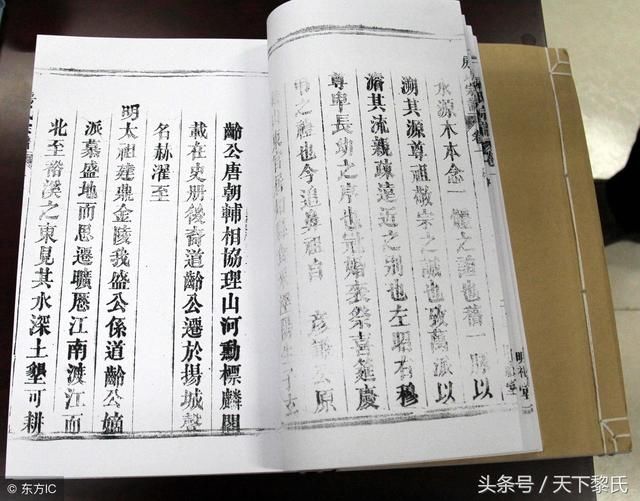 水源木本念一體之誼也藉一脈以
溯其源尊祖敬宗之誠也
派以
濟其流親疎遠近之別也左昭右穆
尊卑長幼之序也冠婚喪祭喜筵慶
之禮也今追鼻祖自 彥謙公原
齡公唐朝輔相協理山河勳標麟閣
載在史册後裔道齡公遷於揚城聲
名赫濯至
明太祖建鼎金陵我盛公係道齡公嫡
派慕盛地而思遷曠歷江南渡江而
北至裕溪之東見其水深土墾可耕
© 东方IC
头条号 / 天下黎氏